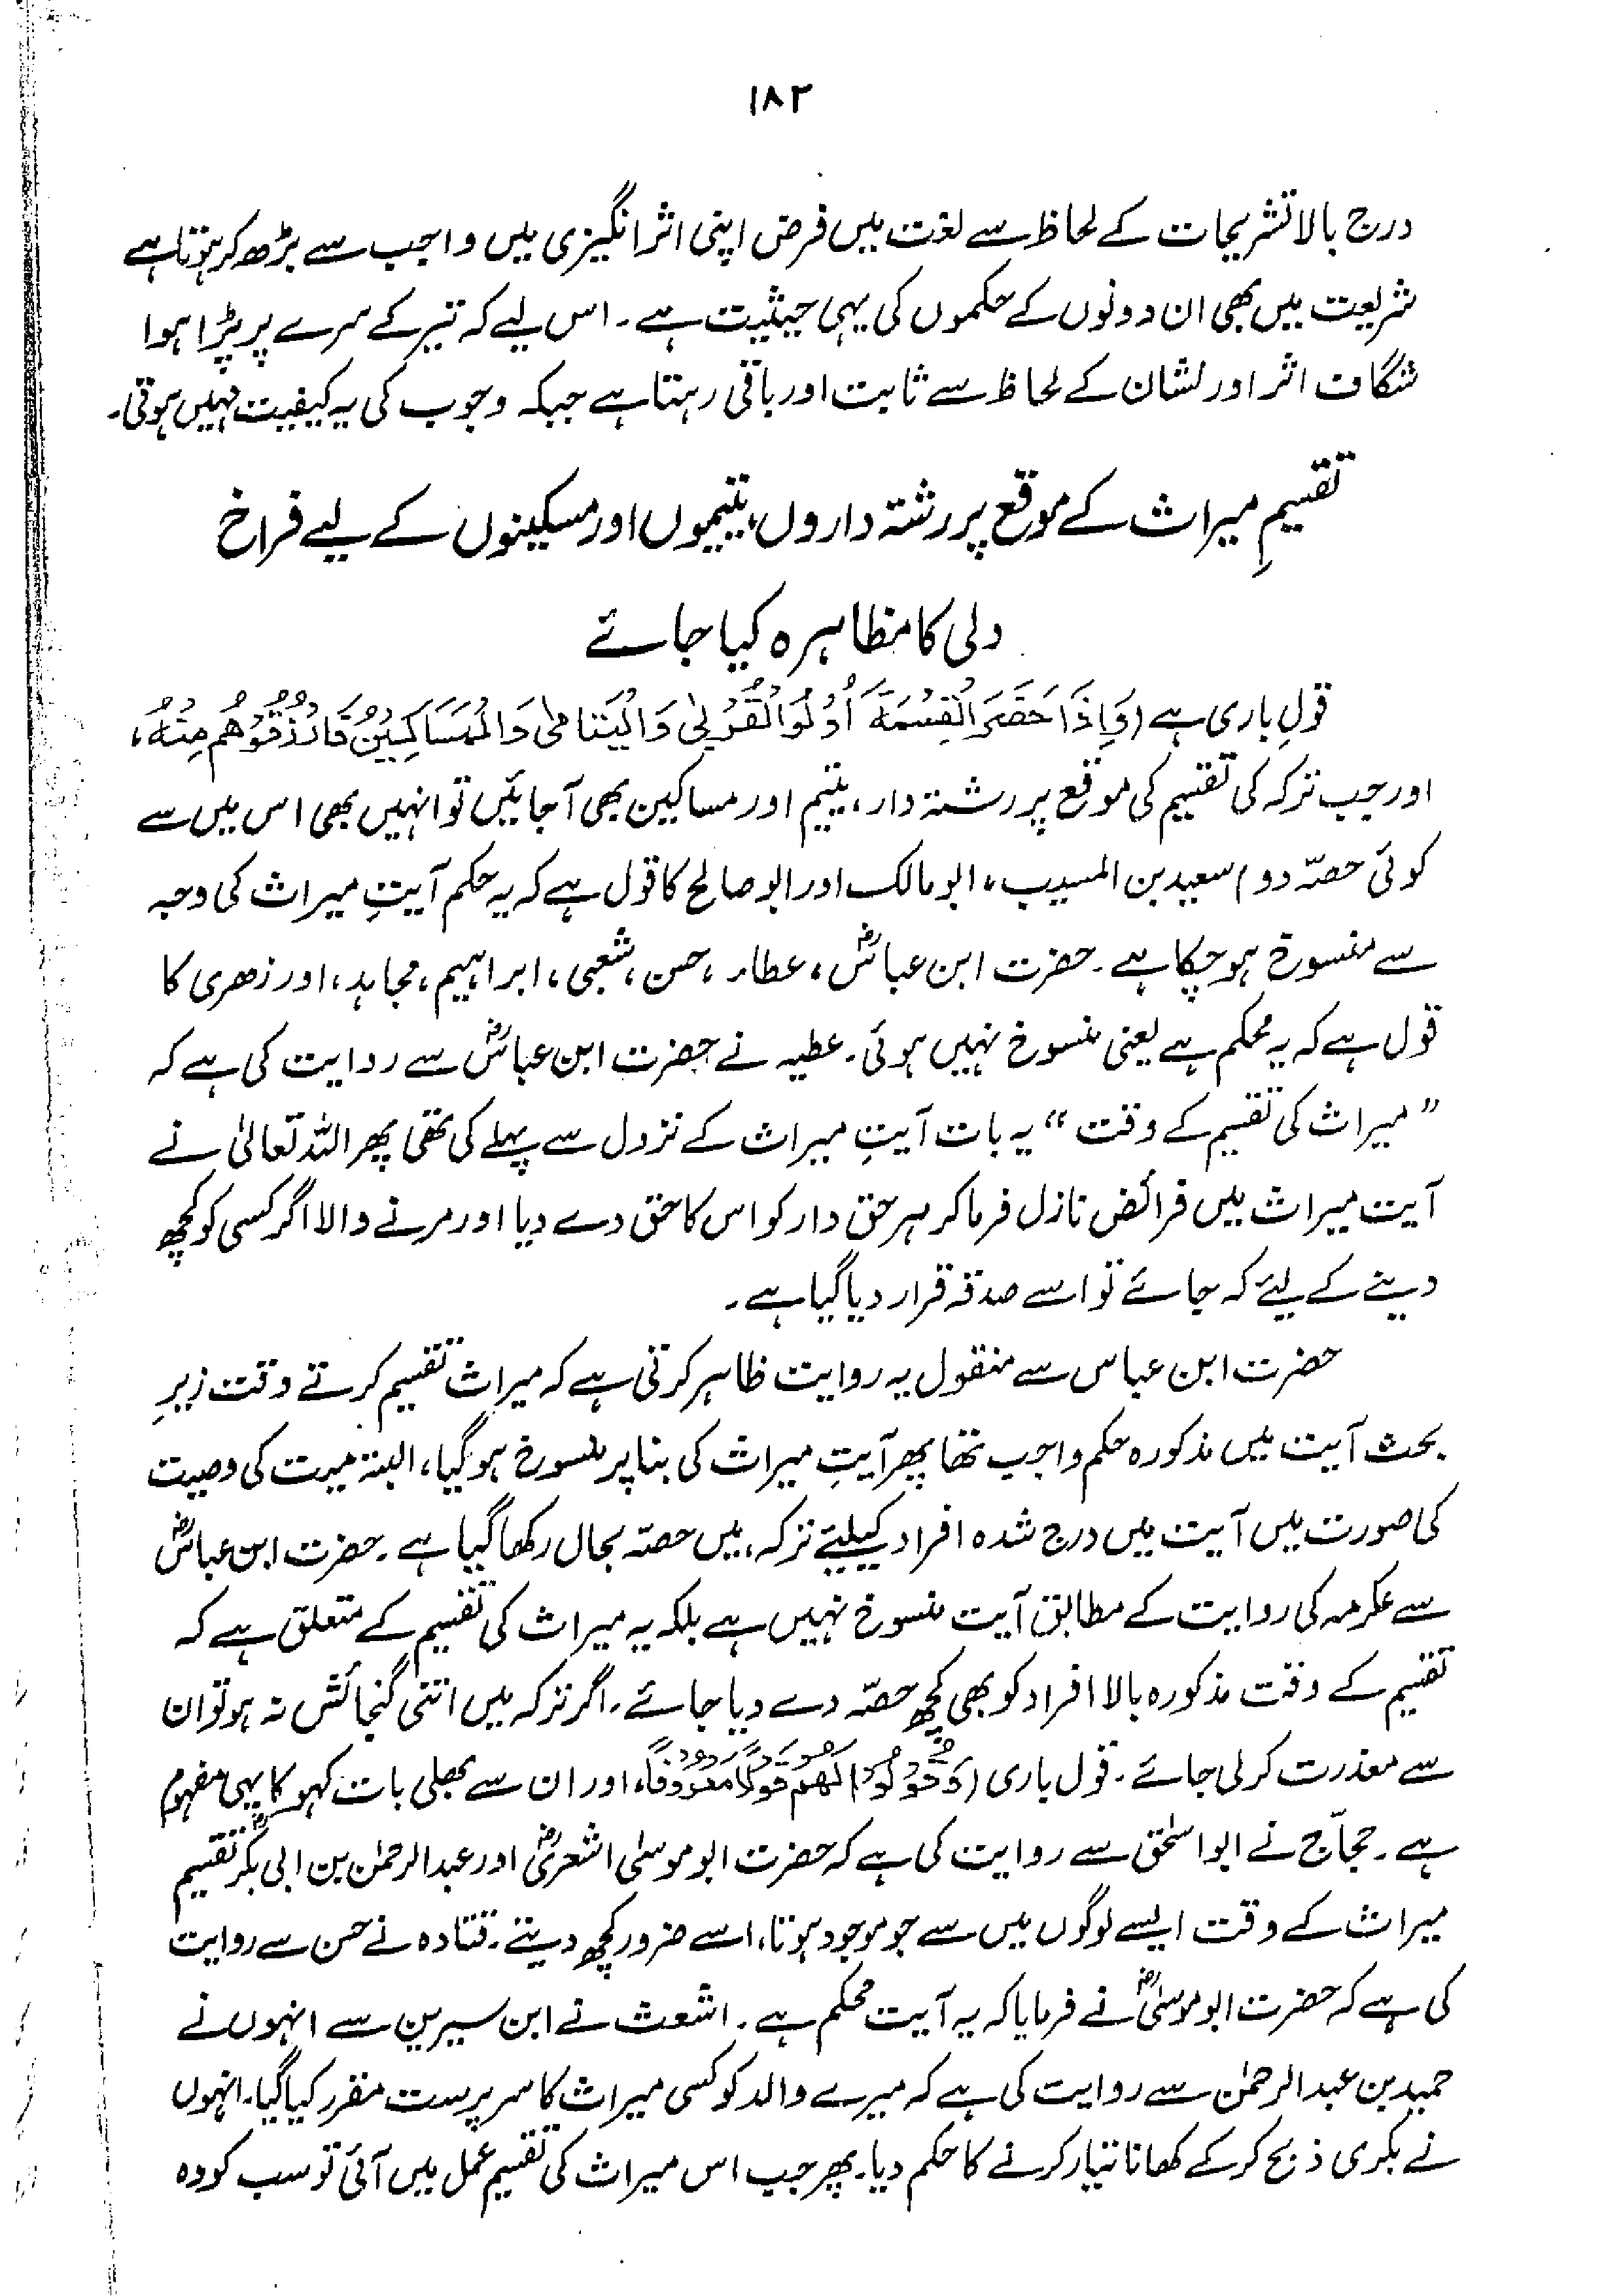 ۱۸۲
درج بالا تشریحات کے لحاظ سے لغت میں فرض اپنی اثر انگیزی میں واجب سے بڑھ کر ہوتا ہے
شریعت میں بھی ان دونوں کے حکموں کی یہی حیثیت ہے۔ اس لیے کہ تیر کے سرے پر پڑا ہوا
شگاف اثر اور نشان کے لحاظ سے ثابت اور باقی رہتا ہے جبکہ وجوب کی یہ کیفیت نہیں ہوتی۔
تقسیمِ میراث کے موقع پر رشتہ داروں، یتیموں اور مسکینوں کے لیے فراخ
دلی کا مظاہرہ کیا جائے
قولِ باری ہے (وَإِذَا حَضَرَ الْقِسْمَةَ أُولُوا الْقُرْبٰى وَالْيَتَامٰى وَالْمَسَاكِيْنُ فَارْزُقُوْهُمْ مِنْهُ،
اور جب ترکہ کی تقسیم کی موقع پر رشتہ دار، یتیم اور مساکین بھی آجائیں تو انہیں بھی اس میں سے
کوئی حصّہ دو) سعید بن المسیب، ابومالک اور ابوصالح کا قول ہے کہ یہ حکم آیتِ میراث کی وجہ
سے منسوخ ہوچکا ہے۔ حضرت ابن عباسؓ، عطاء، حسن، شعبی، ابراہیم، مجاہد، اور زھری کا
قول ہے کہ یہ محکم ہے یعنی منسوخ نہیں ہوئی۔ عطیہ نے حضرت ابن عباسؓ سے روایت کی ہے کہ
"میراث کی تقسیم کے وقت" یہ بات آیتِ میراث کے نزول سے پہلے کی تھی پھر اللہ تعالیٰ نے
آیت میراث میں فرائض نازل فرما کر ہر حق دار کو اس کا حق دے دیا اور مرنے والا اگر کسی کو کچھ
دینے کے لیئے کہ جائے تو اسے صدقہ قرار دیا گیا ہے۔
حضرت ابن عباس سے منقول یہ روایت ظاہر کرتی ہے کہ میراث تقسیم کرتے وقت زیرِ
بحث آیت میں مذکورہ حکم واجب تھا پھر آیتِ میراث کی بنا پر منسوخ ہوگیا، البتہ میت کی وصیت
کی صورت میں آیت میں درج شدہ افراد کیلئے ترکہ میں حصّہ بحال رکھا گیا ہے۔ حضرت ابن عباسؓ
سے عکرمہ کی روایت کے مطابق آیت منسوخ نہیں ہے بلکہ یہ میراث کی تقسیم کے متعلق ہے کہ
تقسیم کے وقت مذکورہ بالا افراد کو بھی کچھ حصّہ دے دیا جائے۔ اگر ترکہ میں اتنی گنجائش نہ ہو تو ان
سے معذرت کرلی جائے۔ قول باری (وَقُوْلُوْا لَهُمْ قَوْلًا مَعْرُوْفًا، اور ان سے بھلی بات کہو کا یہی مفہوم
ہے۔ حجاج نے ابواسحٰق سے روایت کی ہے کہ حضرت ابوموسٰی اشعریؓ اور عبدالرحمٰن بن ابی بکرؓ تقسیم
میراث کے وقت ایسے لوگوں میں سے جو موجود ہوتا، اسے ضرور کچھ دیتے۔ قتادہ نے حسن سے روایت
کی ہے کہ حضرت ابوموسٰیؓ نے فرمایا کہ یہ آیت محکم ہے۔ اشعث نے ابن سیرین سے انہوں نے
حمید بن عبدالرحمٰن سے روایت کی ہے کہ میرے والد کو کسی میراث کا سرپرست مقرر کیا گیا۔ انہوں
نے بکری ذبح کرکے کھانا تیار کرنے کا حکم دیا۔ پھر جب اس میراث کی تقسیم عمل میں آئی تو سب کو وہ